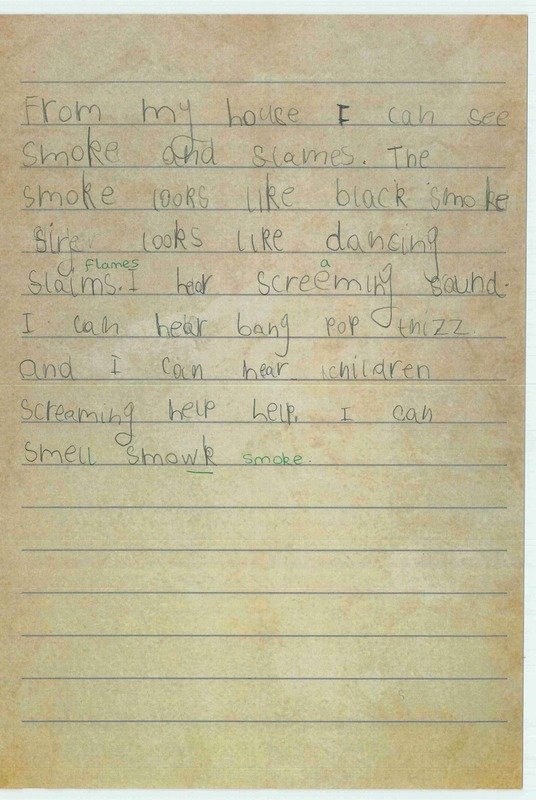 From my house I can see
smoke and slames. The
smoke looks like black smoke
looks like dancing
flames a
slaims. I hear screeming sound.
I can hear bang pop thizz
and I can hear children
screaming help help. I can
smell smowk smoke.